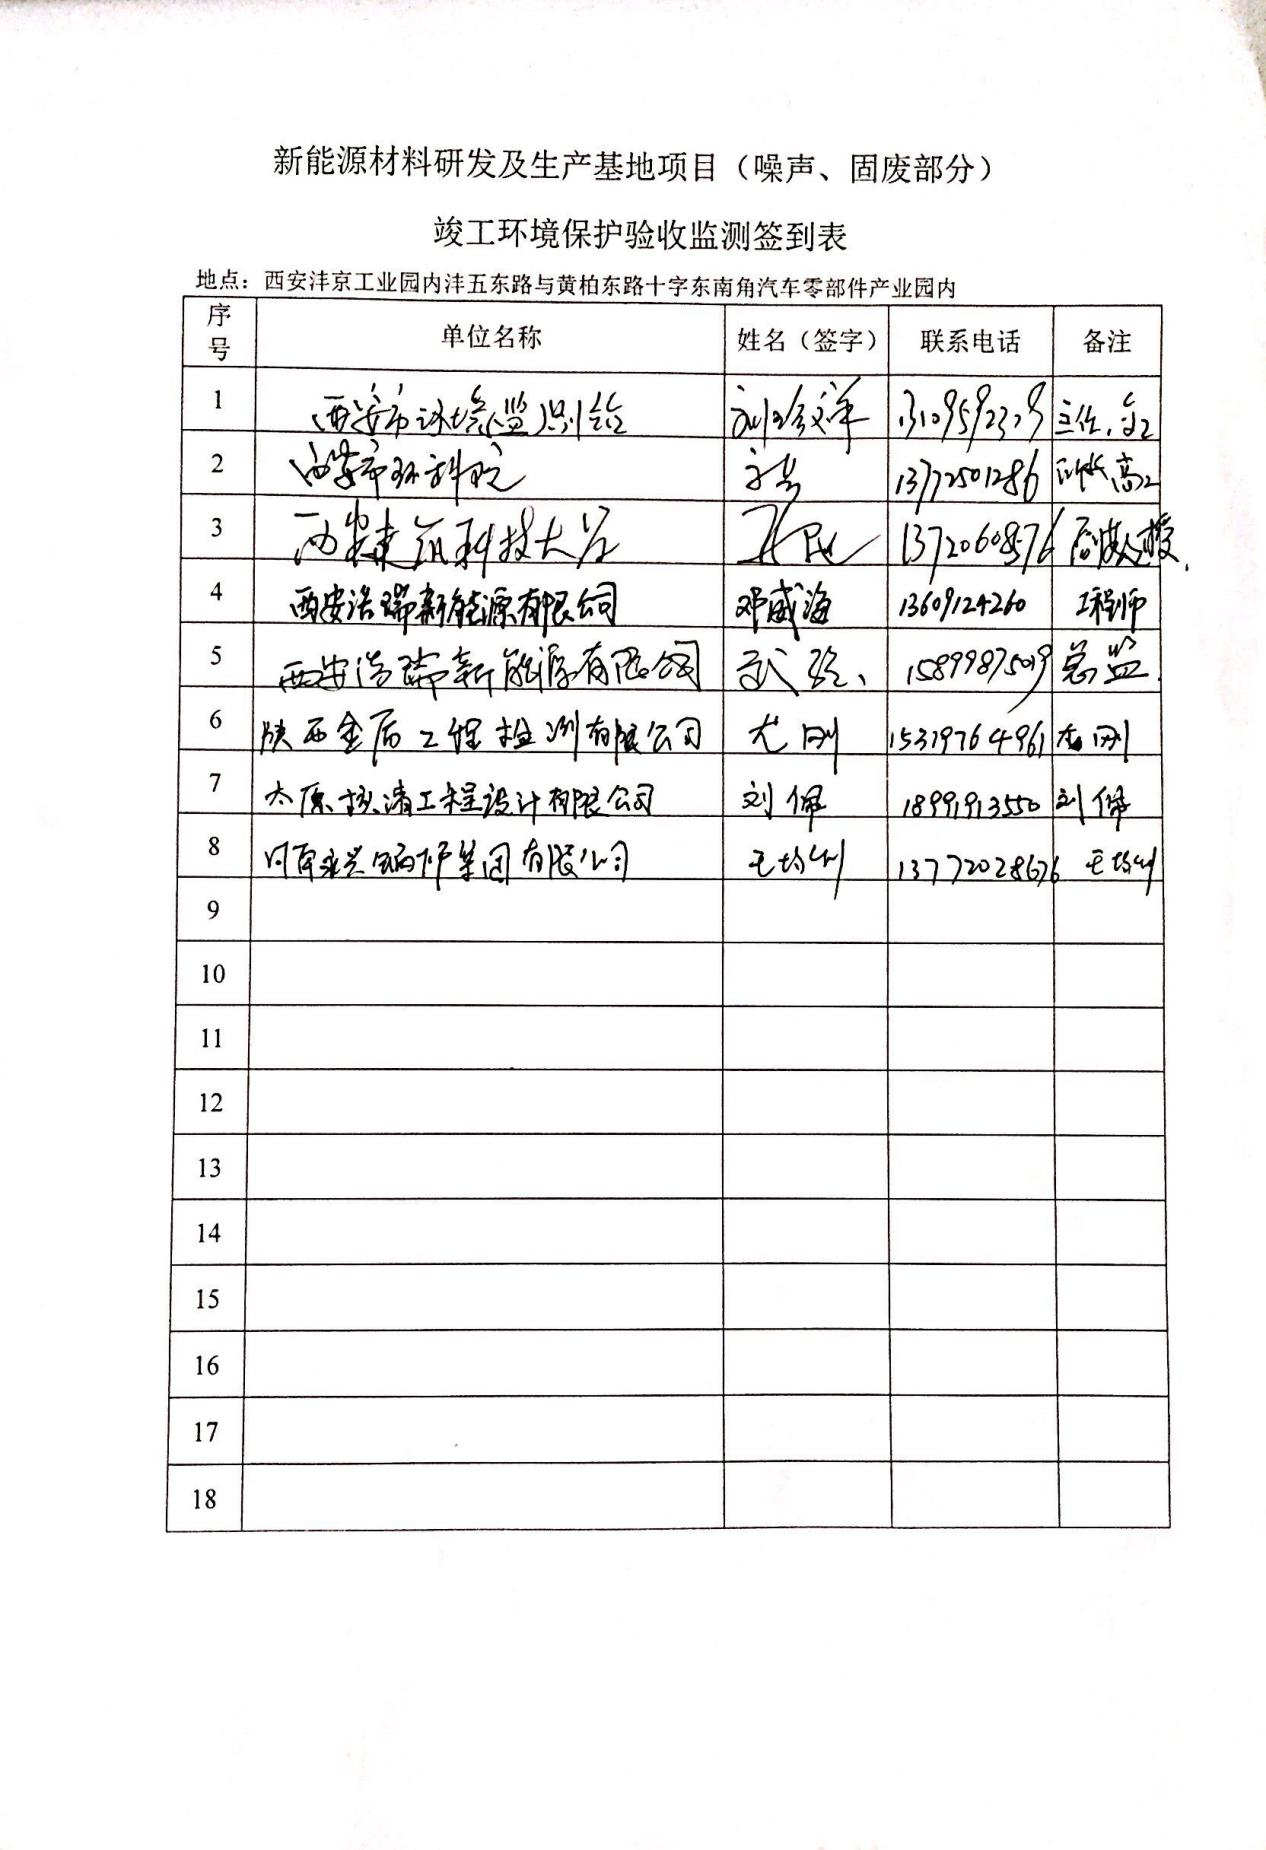 新能源材料研发及生产基地项目（噪声、固废部分）
竣工环境保护验收监测签到表
地点：西安沣京工业园内沣五东路与黄柏东路十字东南角汽车零部件产业园内
序号 单位名称 姓名（签字） 联系电话 备注
1 西安市环境监测站 主任、
2 西安市环科院 13772501286 高工
3 西安建筑科技大学 13720608576
4 西安浩瑞新能源有限公司 邓威海 13609124260 工程师
5 西安浩瑞新能源有限公司 武 总监
6 陕西金盾工程检测有限公司 尤刚 15319764961 尤刚
7 太原核清工程设计有限公司 刘佩 18991913550 刘佩
8 河南永兴锅炉集团有限公司 13772028676
9
10
11
12
13
14
15
16
17
18